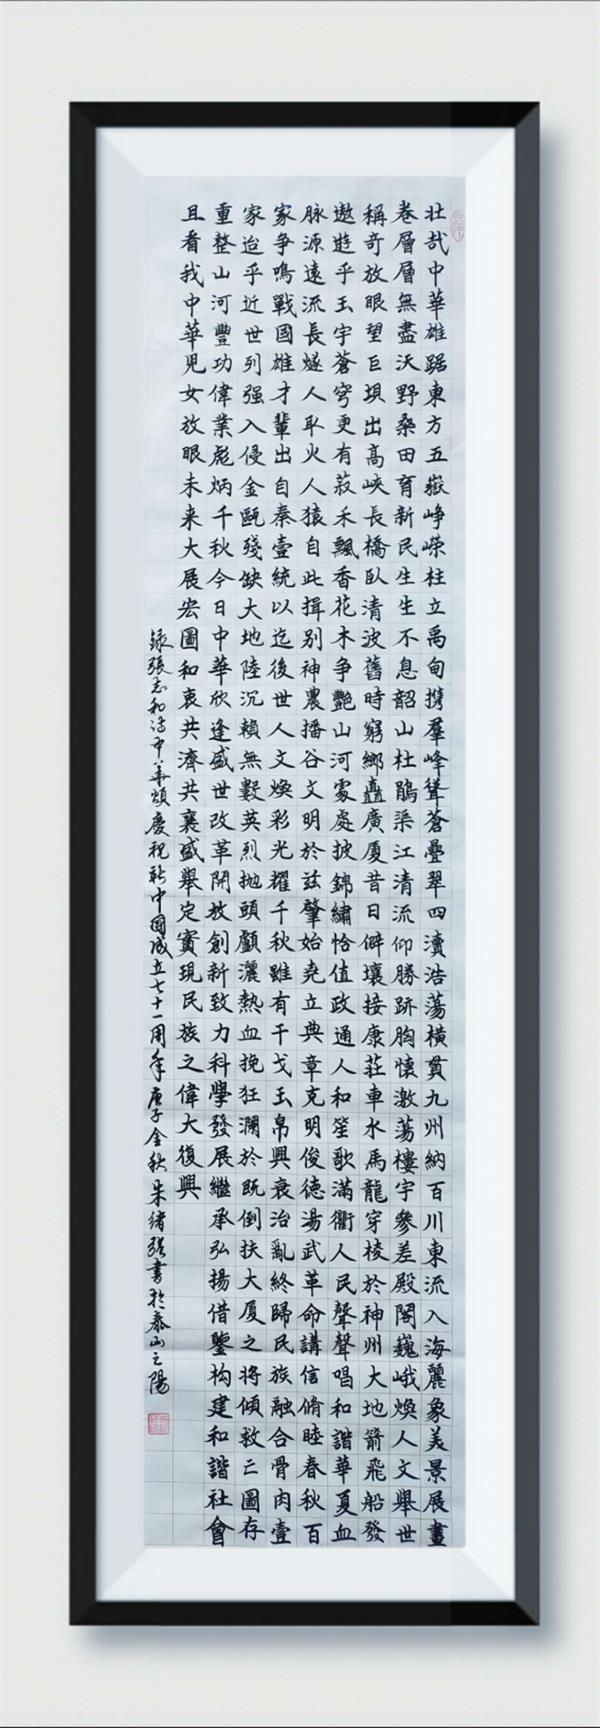 壮哉中華雄踞東方五嶽崢嶸柱立禹甸携羣峰聳蒼疊翠四瀆浩蕩横貫九州納百川東流入海麗象美景展畫
卷層層無盡沃野桑田育新民生生不息韶山杜鵑渠江清流仰勝跡胸懷激蕩樓宇參差殿閣巍峨焕人文舉世
稱奇放眼望巨垻出高峽長橋臥清波舊時窮鄉矗廣厦昔日僻壤接康莊車水馬龍穿梭於神州大地箭飛船發
遨遊乎玉宇蒼穹更有菽禾飄香花木争艷山河處處披錦繡恰值政通人和笙歌滿衢人民聲聲唱和諧華夏血
脉源遠流長燧人取火人猿自此揖别神農播谷文明於兹肇始堯立典章克明俊德湯武革命講信脩睦春秋百
家争鳴戰國雄才輩出自秦壹統以迄後世人文焕彩光耀千秋雖有干戈玉帛興衰治亂終歸民族融合骨肉壹
家迨乎近世列强入侵金甌殘缺大地陸沉賴無數英烈抛頭顱灑熱血挽狂瀾於既倒扶大厦之將傾救亡圖存
重整山河豐功偉業彪炳千秋今日中華欣逢盛世改革開放創新致力科學發展繼承弘揚借鑒构建和諧社會
且看我中華兒女放眼未来大展宏圖和衷共濟共襄盛舉定實現民族之偉大復興
録張志和詩中華頌慶祝新中國成立七十一周年庚子金秋朱緒强書於泰山之陽